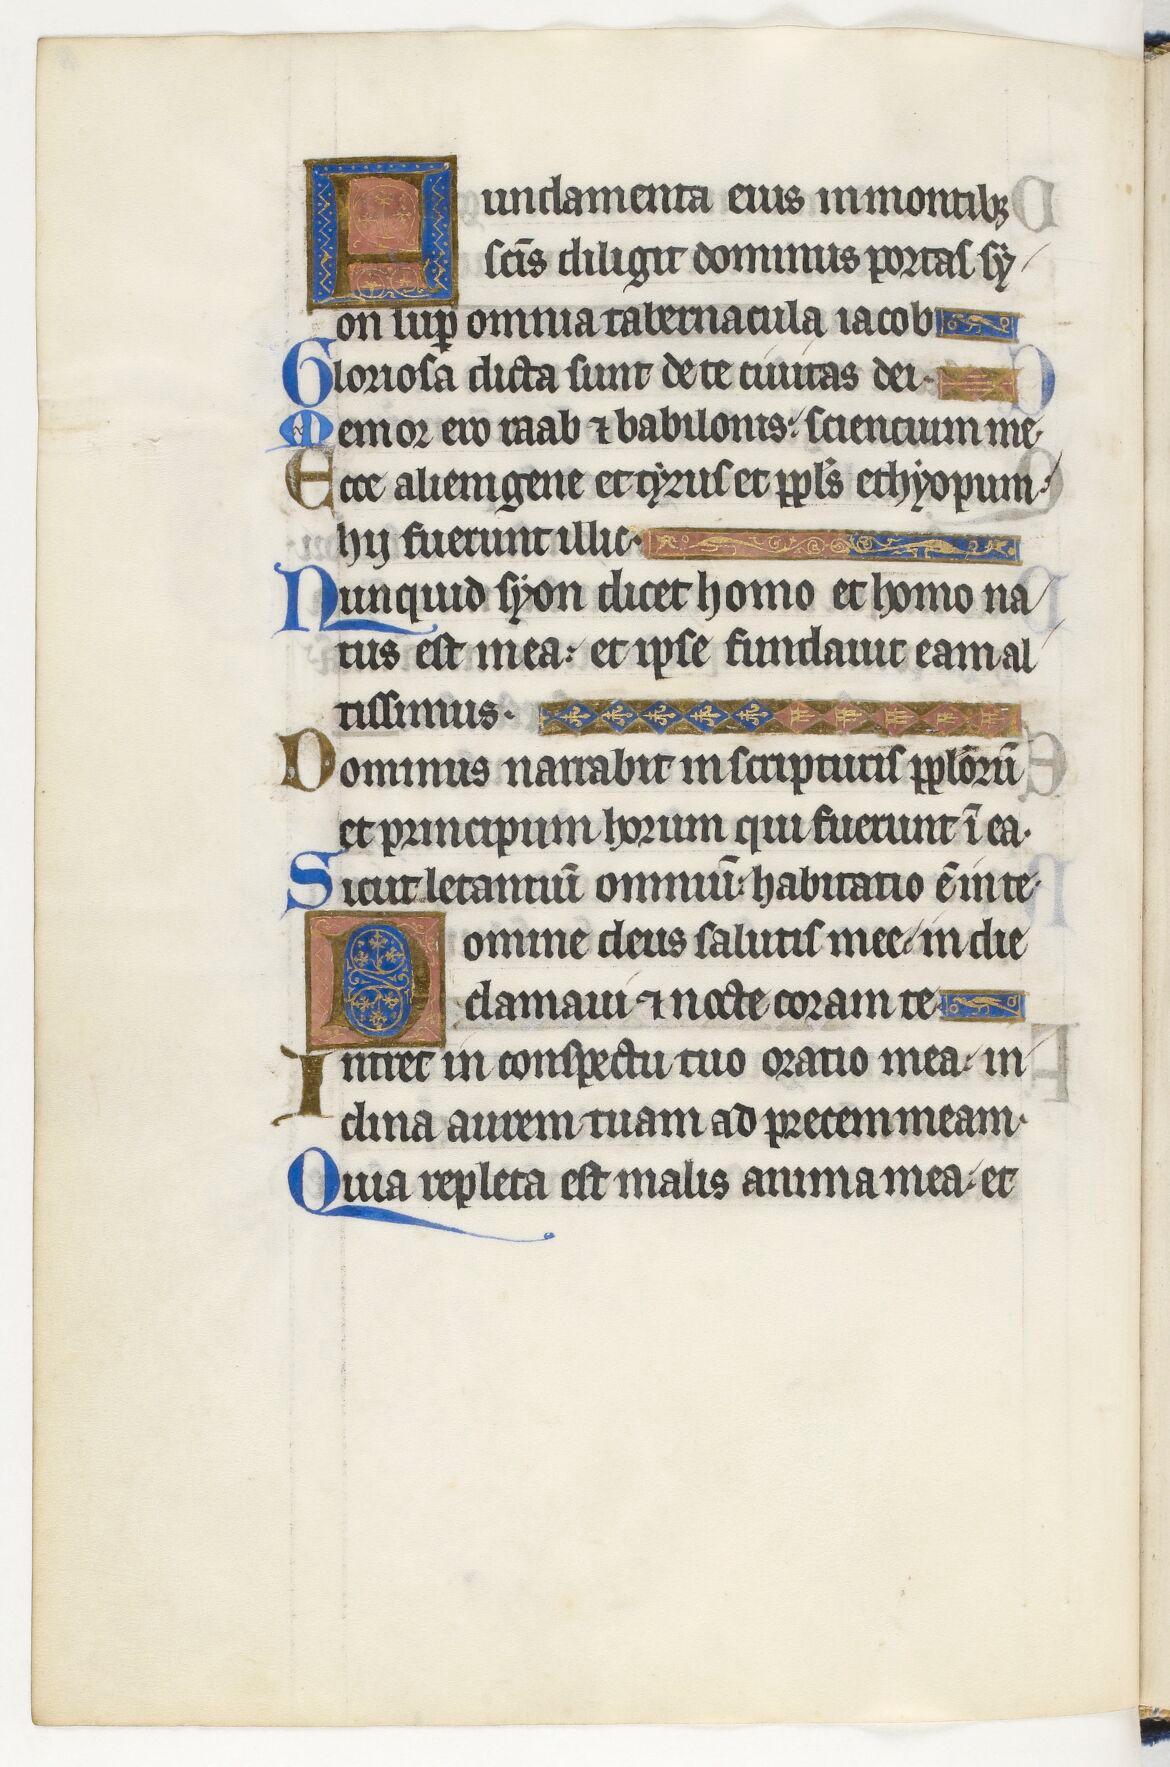 Fundamenta eius in montibꝫ
sc̄is diligit dominus portas sẏ
on suꝑ omnia tabernacula iacob
Gloriosa dicta sunt de te ciuitas dei.
Memor ero raab ⁊ babilonis: scientium me.
Ecce alienigene et tẏrus et ppl̄s ethẏopum.
hij fuerunt illic.
Nunquid sẏon dicet homo et homo na
tus est mea: et ipse fundauit eam al
tissimus.
Dominus narrabit in scripturis ppl̄orū
et principum horum qui fuerunt ī ea.
Sicut letantiū omniū: habitatio ē in te.
Domine deus salutis mee: in die
clamaui ⁊ nocte coram te
Intret in conspectu tuo oratio mea: in
clina aurem tuam ad precem meam.
Quia repleta est malis anima mea: et